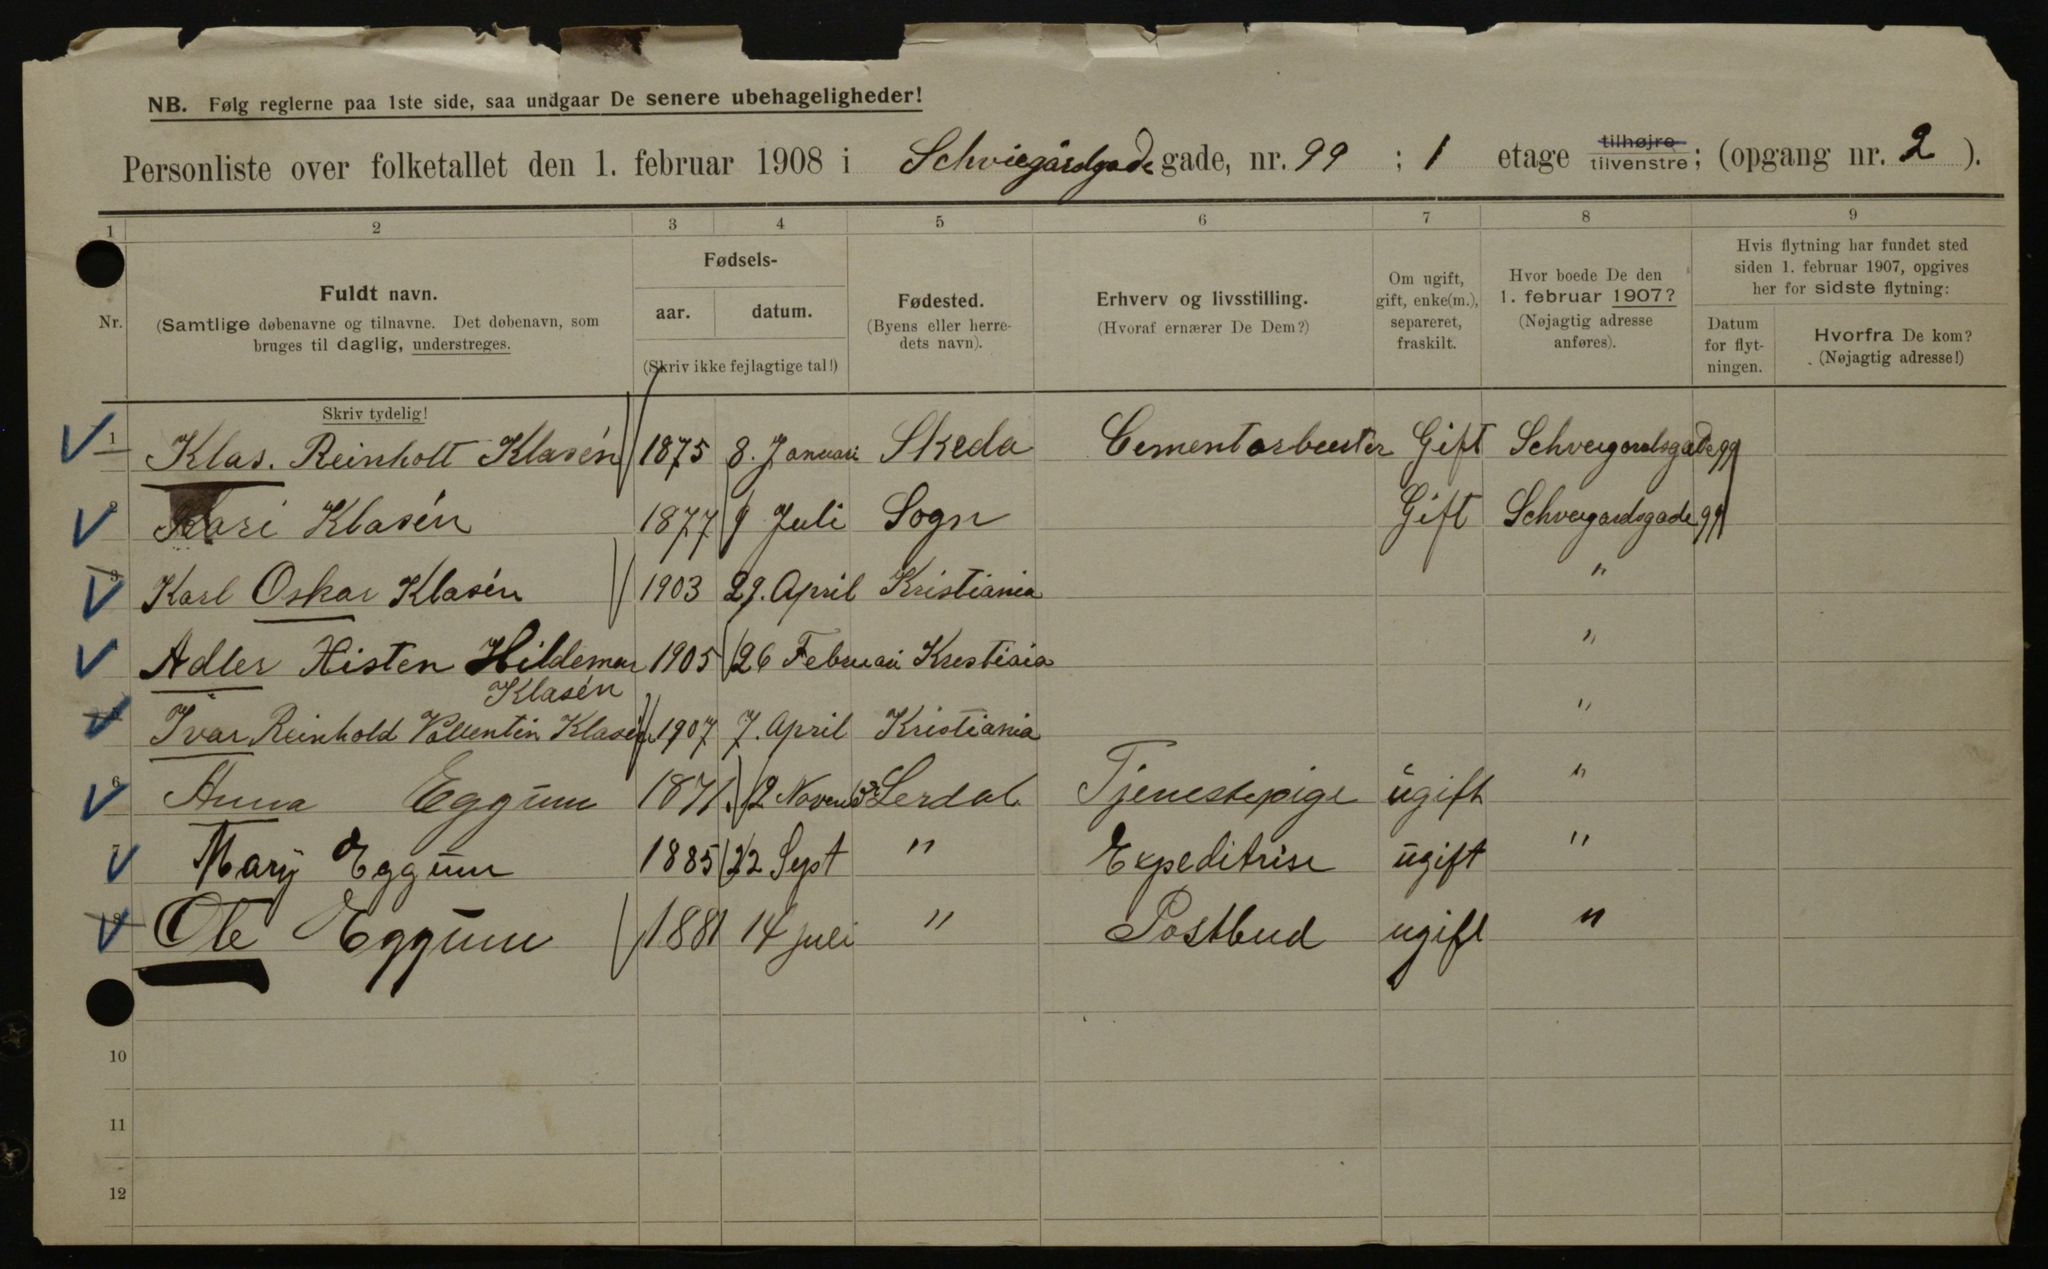 NB. Følg reglerne paa 1ste side, saa undgaar De senere ubehageligheder!
Personliste over folketallet den 1. februar 1908 i Schviegårdgade gade, nr. 99 ; 1 etage tilhøjre tilvenstre; (opgang nr. 2 ).
1 2 3 4 5 6 7 8 9
Nr.
Fuldt navn.
(Samtlige døbenavne og tilnavne. Det døbenavn, som
bruges til daglig, understreges.
Skriv tydelig!
Fødsels-
aar. datum.
(Skriv ikke fejlagtige tal!)
Fødested.
(Byens eller herre-
dets navn).
Erhverv og livsstilling.
(Hvoraf ernærer De Dem?)
Om ugift,
gift, enke(m.),
separeret,
fraskilt.
Hvor boede De den
1. februar 1907?
(Nøjagtig adresse
anføres).
Hvis flytning har fundet sted
siden 1. februar 1907, opgives
her for sidste flytning:
Datum
for flyt-
ningen.
Hvorfra De kom?
(Nøjagtig adresse!)
1 Klas. Reinholt Klasén 1875 8. Januari Skeda Cementarbeister Gift Schveigardsgade 99
2 Kari Klasén 1877 9 Juli Sogn Gift Schveigardsgade 99
3 Karl Oskar Klasén 1903 29. April Kristiania "
Adler Histen Hildemar 1905 26 Februari Krestiaia "
Klasén
Ivar Reinhold Vallentin Klasén 1907 7. April Kristiania "
6 Anna Eggum 1871 2 Novemb Lerdal Tjenestepige ugift "
7 Mary Eggum 1885 22 Sept " Expeditrise ugift "
8 Ole Eggum 1881 14 juli " Postbud ugift "
10
11
12